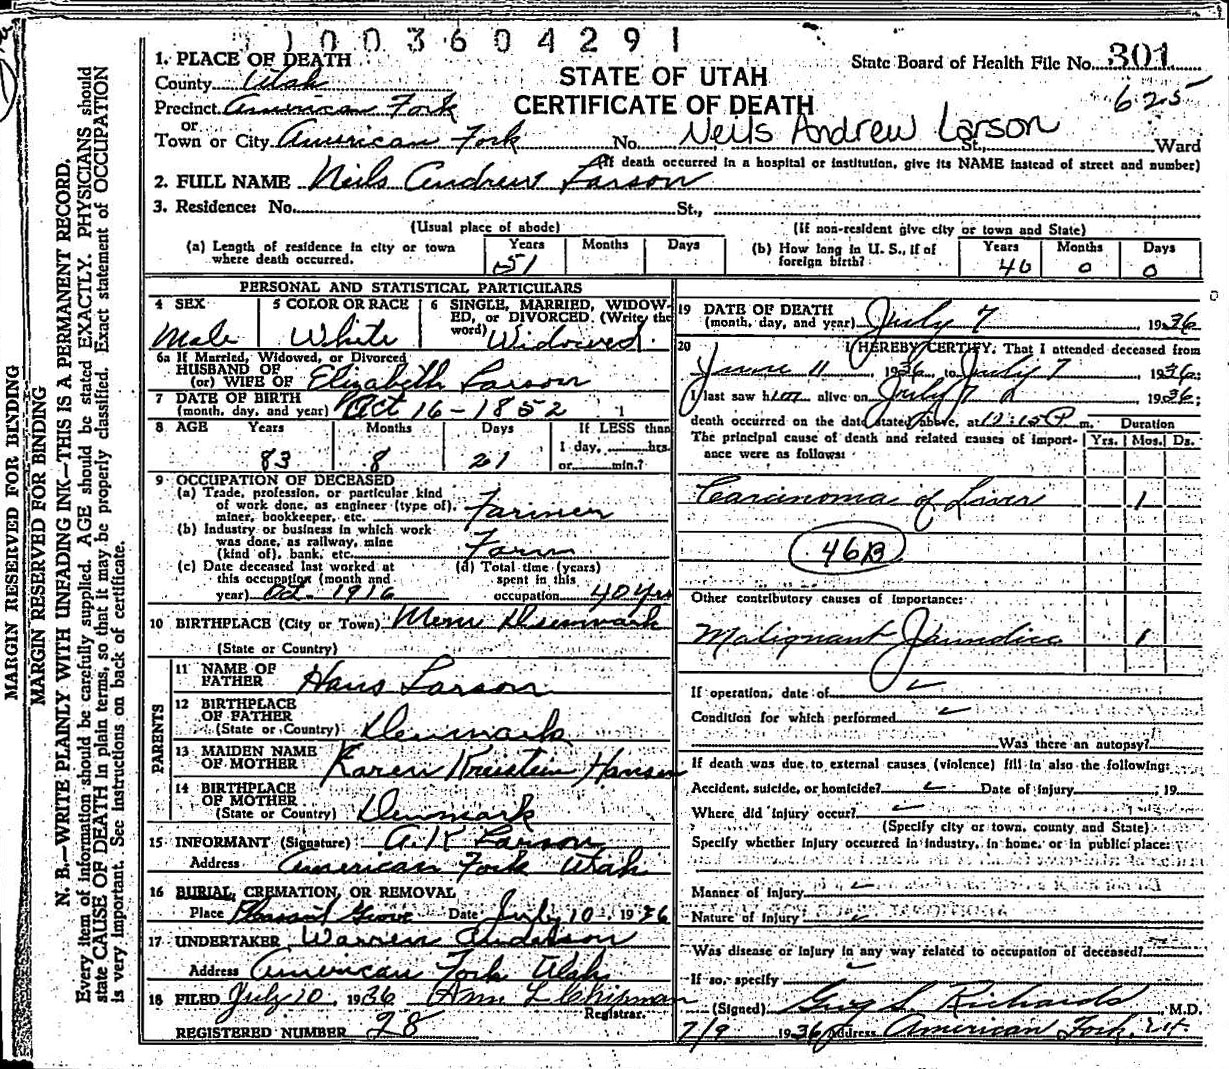 1003604291
1. PLACE OF DEATH
County Utah
Precinct American Fork
or
Town or City American Fork No. St., Ward
STATE OF UTAH
CERTIFICATE OF DEATH
State Board of Health File No. 301
625
Neils Andrew Larson
(If death occurred in a hospital or institution, give its NAME instead of street and number)
2. FULL NAME Neils Andrew Larson
3. Residence: No. St.,
(Usual place of abode) (If non-resident give city or town and State)
(a) Length of residence in city or town where death occurred. Years 51 Months Days
(b) How long in U. S., if of foreign birth? Years 40 Months 0 Days 0
PERSONAL AND STATISTICAL PARTICULARS
4 SEX Male
5 COLOR OR RACE White
6 SINGLE, MARRIED, WIDOWED, OR DIVORCED. (Write the word) Widowed.
6a If Married, Widowed, or Divorced
HUSBAND OF
(or) WIFE OF Elizabeth Larson
7 DATE OF BIRTH
(month, day, and year) Oct 16 - 1852
8 AGE Years 83 Months 8 Days 21
If LESS than
1 day, hrs.
or min.?
9 OCCUPATION OF DECEASED
(a) Trade, profession, or particular kind
of work done, as engineer (type of),
miner, bookkeeper, etc. Farmer
(b) Industry or business in which work
was done, as railway, mine
(kind of), bank, etc. Farm
(c) Date deceased last worked at
this occupation (month and
year) Oct. 1916
(d) Total time (years)
spent in this
occupation 40 Yrs
10 BIRTHPLACE (City or Town) Denmark
(State or Country)
PARENTS
11 NAME OF
FATHER Hans Larson
12 BIRTHPLACE
OF FATHER
(State or Country) Denmark
13 MAIDEN NAME
OF MOTHER Karen Hansen
14 BIRTHPLACE
OF MOTHER
(State or Country) Denmark
15 INFORMANT (Signature) A. K Larson
Address American Fork Utah
16 BURIAL, CREMATION, OR REMOVAL
Place Pleasant Grove Date July 10, 1936
17 UNDERTAKER Warren Anderson
Address American Fork Utah
18 FILED July 10, 1936 L Chipman
Registrar.
REGISTERED NUMBER 28
19 DATE OF DEATH
(month, day, and year) July 7, 1936
20 I HEREBY CERTIFY, That I attended deceased from
June 11, 1936, to July 7 1936;
I last saw him alive on July 7 1936;
death occurred on the date stated above, at 11:15 P m.
Duration
Yrs. Mos. Ds.
The principal cause of death and related causes of importance were as follows:
Carcinoma of Liver 1
46B
Other contributory causes of importance:
Malignant Jaundice 1
If operation, date of
Condition for which performed
Was there an autopsy?
If death was due to external causes (violence) fill in also the following:
Accident, suicide, or homicide? Date of injury , 19
Where did injury occur?
(Specify city or town, county and State)
Specify whether injury occurred in industry, in home, or in public place:
Manner of Injury
Nature of Injury
Was disease or injury in any way related to occupation of deceased?
If so, specify
(Signed) Guy S. Richards, M.D.
7/9 1936 Address American Fork, Ut
MARGIN RESERVED FOR BINDING
MARGIN RESERVED FOR BINDING
N. B.—WRITE PLAINLY WITH UNFADING INK—THIS IS A PERMANENT RECORD.
Every item of information should be carefully supplied. AGE should be stated EXACTLY. PHYSICIANS should
state CAUSE OF DEATH in plain terms, so that it may be properly classified. Exact statement of OCCUPATION
is very important. See instructions on back of certificate.